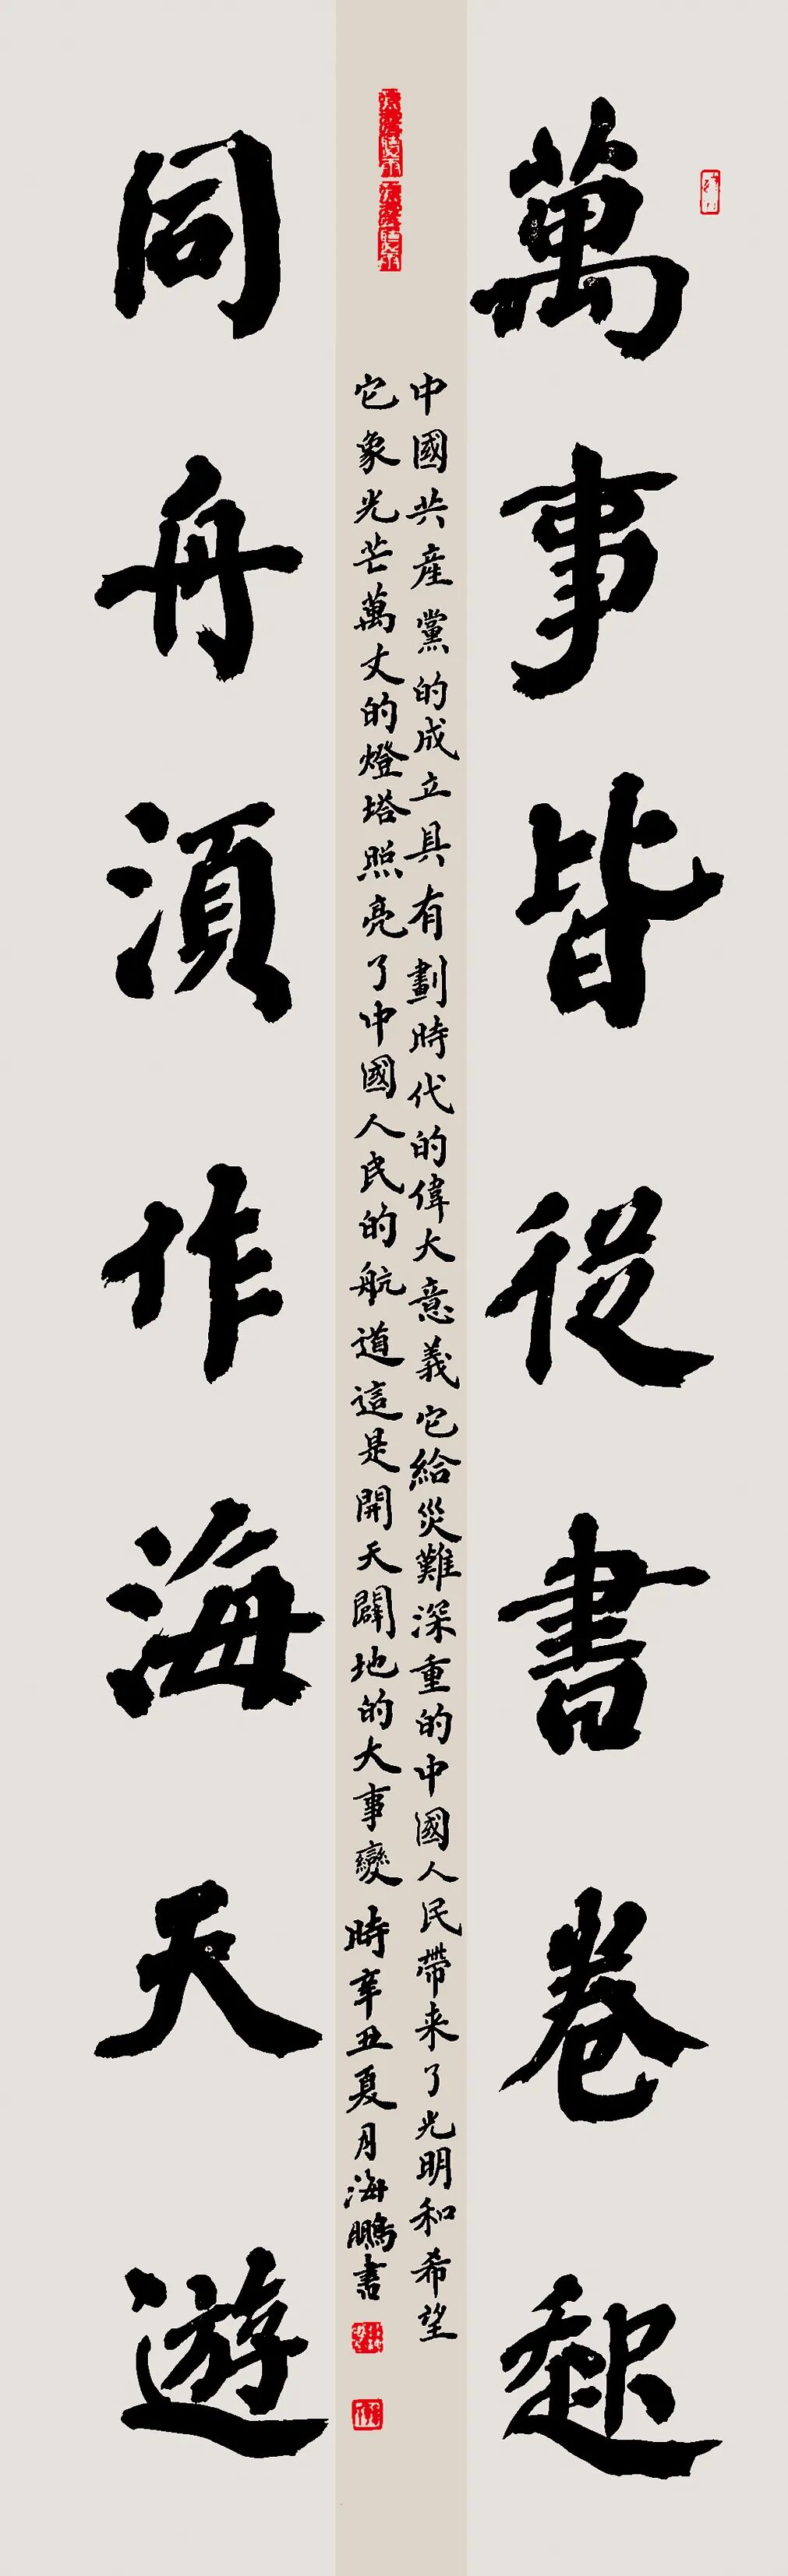 萬事皆從書卷起
中國共產黨的成立具有劃時代的偉大意義它給災難深重的中國人民帶来了光明和希望
它象光芒萬丈的燈塔照亮了中國人民的航道這是開天闢地的大事變 時辛丑夏月海鵬書
同舟須作海天遊